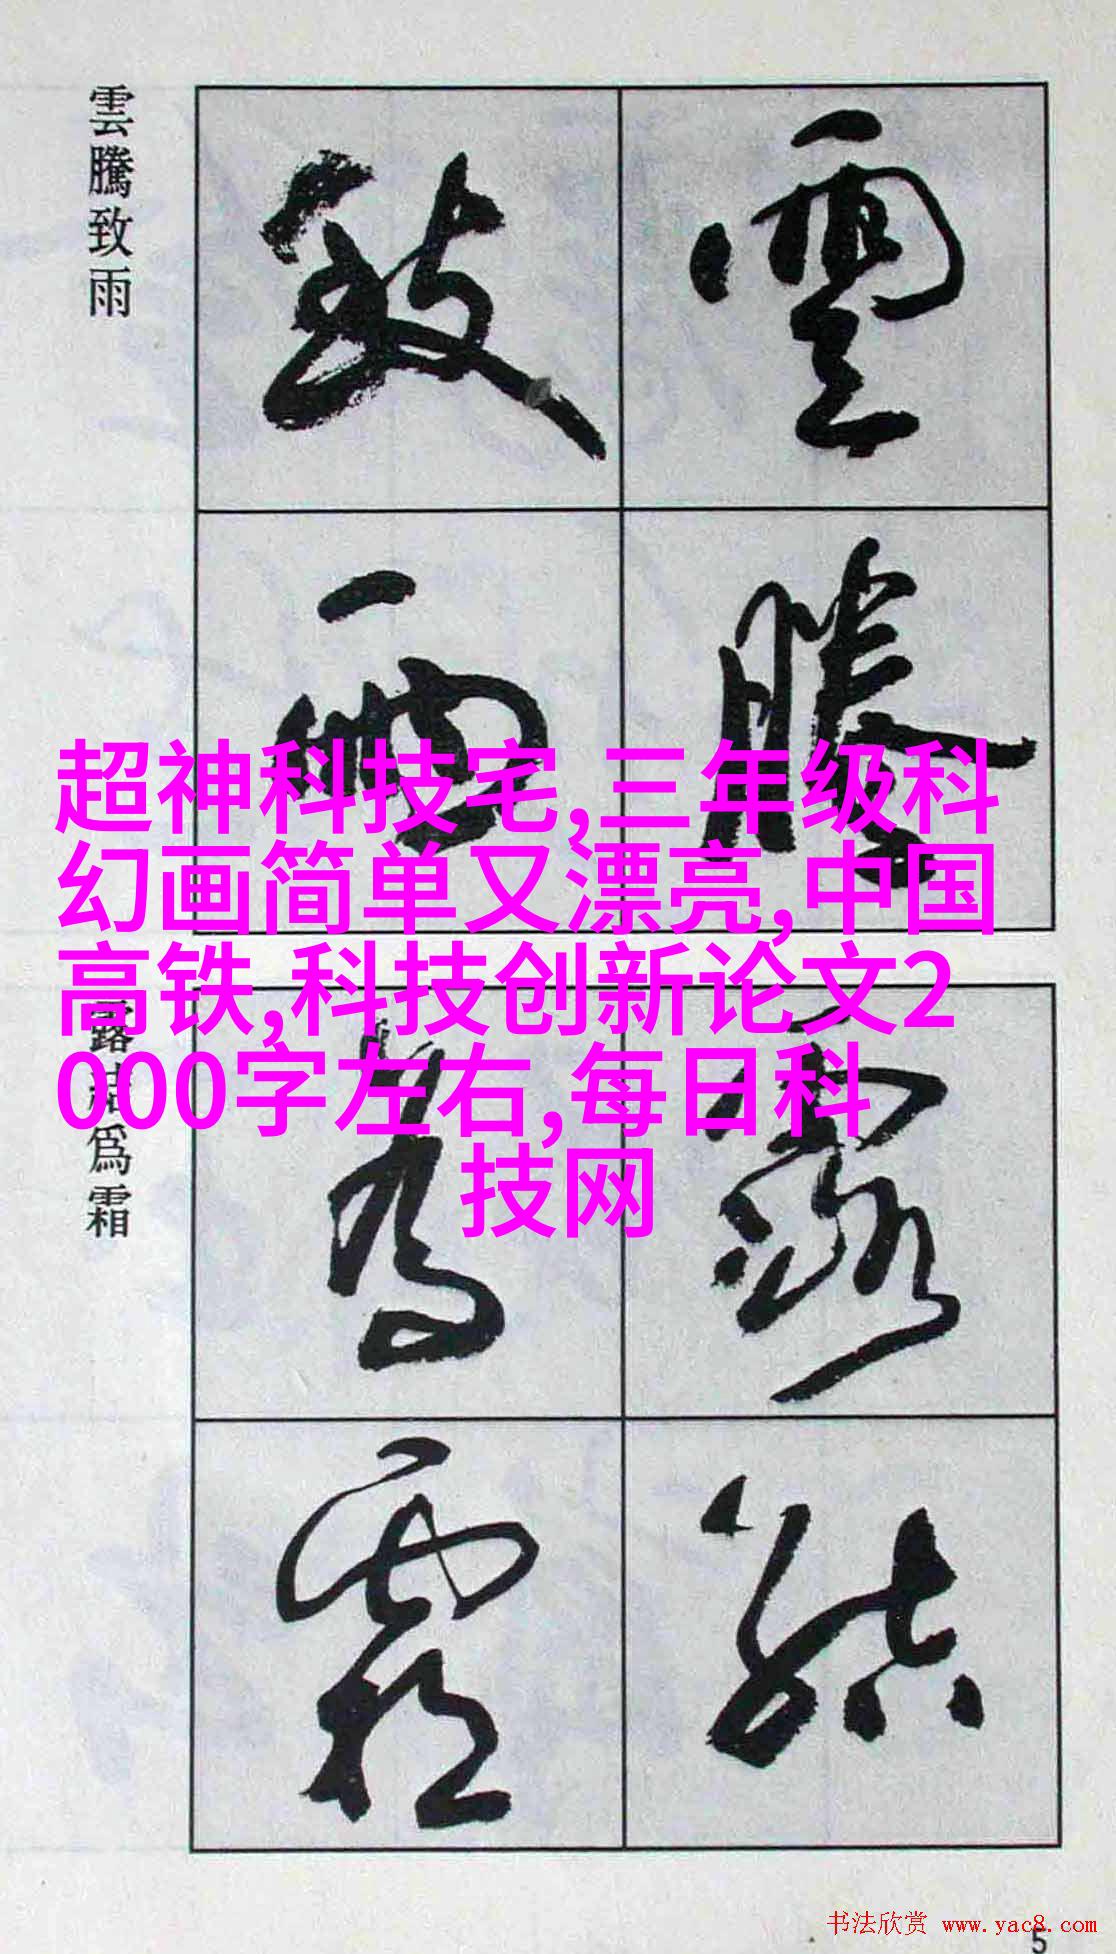 雲騰致雨
雲
騰
致
雨
超神科技宅,三年级科
幻画简单又漂亮,中国
高铁,科技创新论文2
000字左右,每日科
技网
露結爲霜
露
結
爲
霜
书法欣赏 www.yac8.com
5